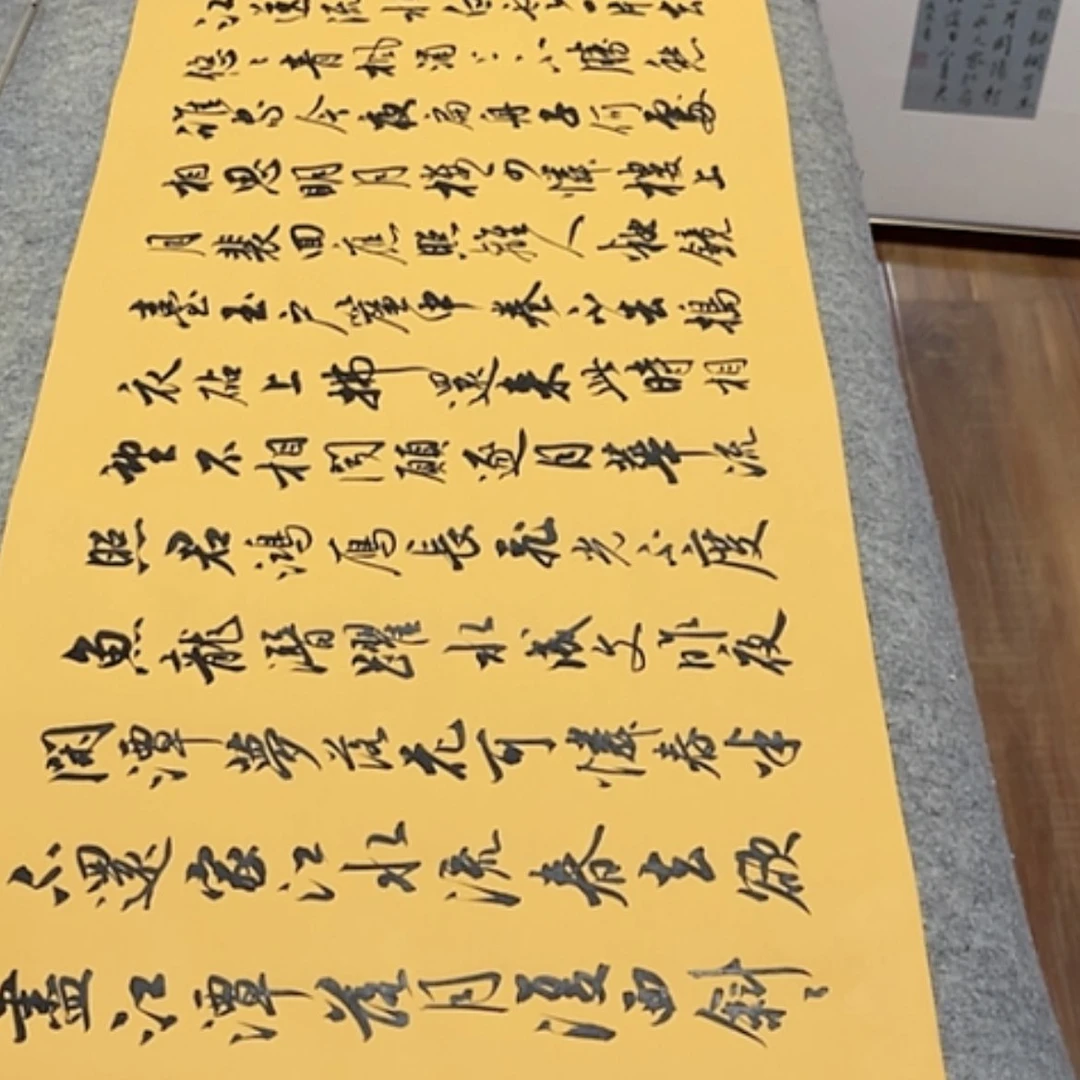 江送流水白雲一片去
悠〻青楓浦上不勝愁
誰家今夜扁舟子何處
相思明月樓可憐樓上
月裴回應照離人妝鏡
臺玉戶簾中卷不去搗
衣砧上拂還來此時相
望不相聞願逐月華流
照君鴻雁長飛光不度
魚龍潛躍水成文昨夜
閑潭夢落花可憐春半
不還家江水流春去欲
盡江潭落月復西斜〻